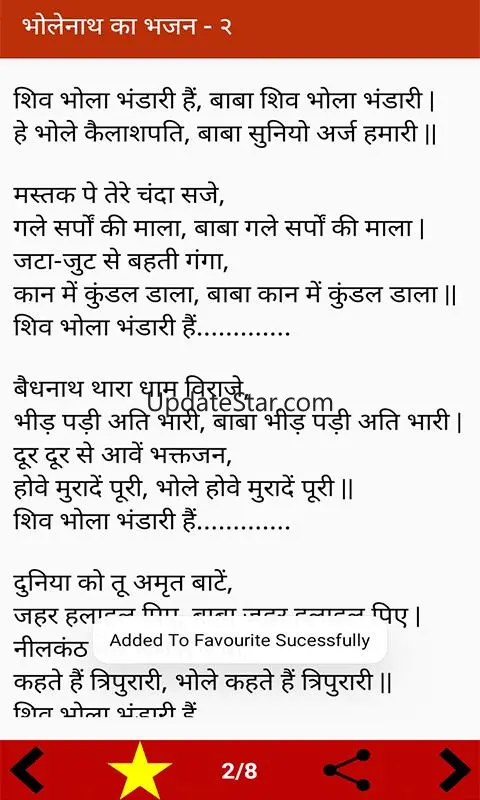 भोलेनाथ का भजन - २
शिव भोला भंडारी हैं, बाबा शिव भोला भंडारी |
हे भोले कैलाशपति, बाबा सुनियो अर्ज हमारी ||
मस्तक पे तेरे चंदा सजे,
गले सर्पों की माला, बाबा गले सर्पों की माला |
जटा-जुट से बहती गंगा,
कान में कुंडल डाला, बाबा कान में कुंडल डाला ||
शिव भोला भंडारी हैं.............
बैधनाथ थारा धाम विराजे,
UpdateStar.com
भीड़ पड़ी अति भारी, बाबा भीड़ पड़ी अति भारी |
दूर दूर से आवें भक्तजन,
होवे मुरादें पूरी, भोले होवे मुरादें पूरी ||
शिव भोला भंडारी हैं.............
दुनिया को तू अमृत बाटें,
जहर हलाहल पिए, बाबा जहर हलाहल पिए |
Added To Favourite Sucessfully
नीलकंठ
कहते हैं त्रिपुरारी, भोले कहते हैं त्रिपुरारी ||
शिव भोला भंडारी हैं
2/8